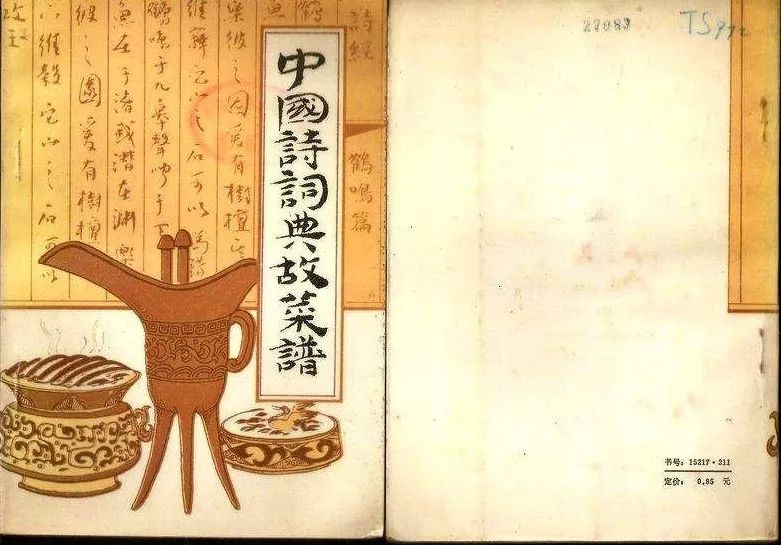 詩經
鶴鳴篇
中國詩詞典故菜譜
樂彼之園爰有樹檀其
維蘀它山之石可以為錯
鶴鳴于九皋聲聞于天
魚在于渚或潛在淵樂
彼之園爰有樹檀
下維穀它山之石可以
攻玉
TS972
书号：15217·211
定价： 0.85 元